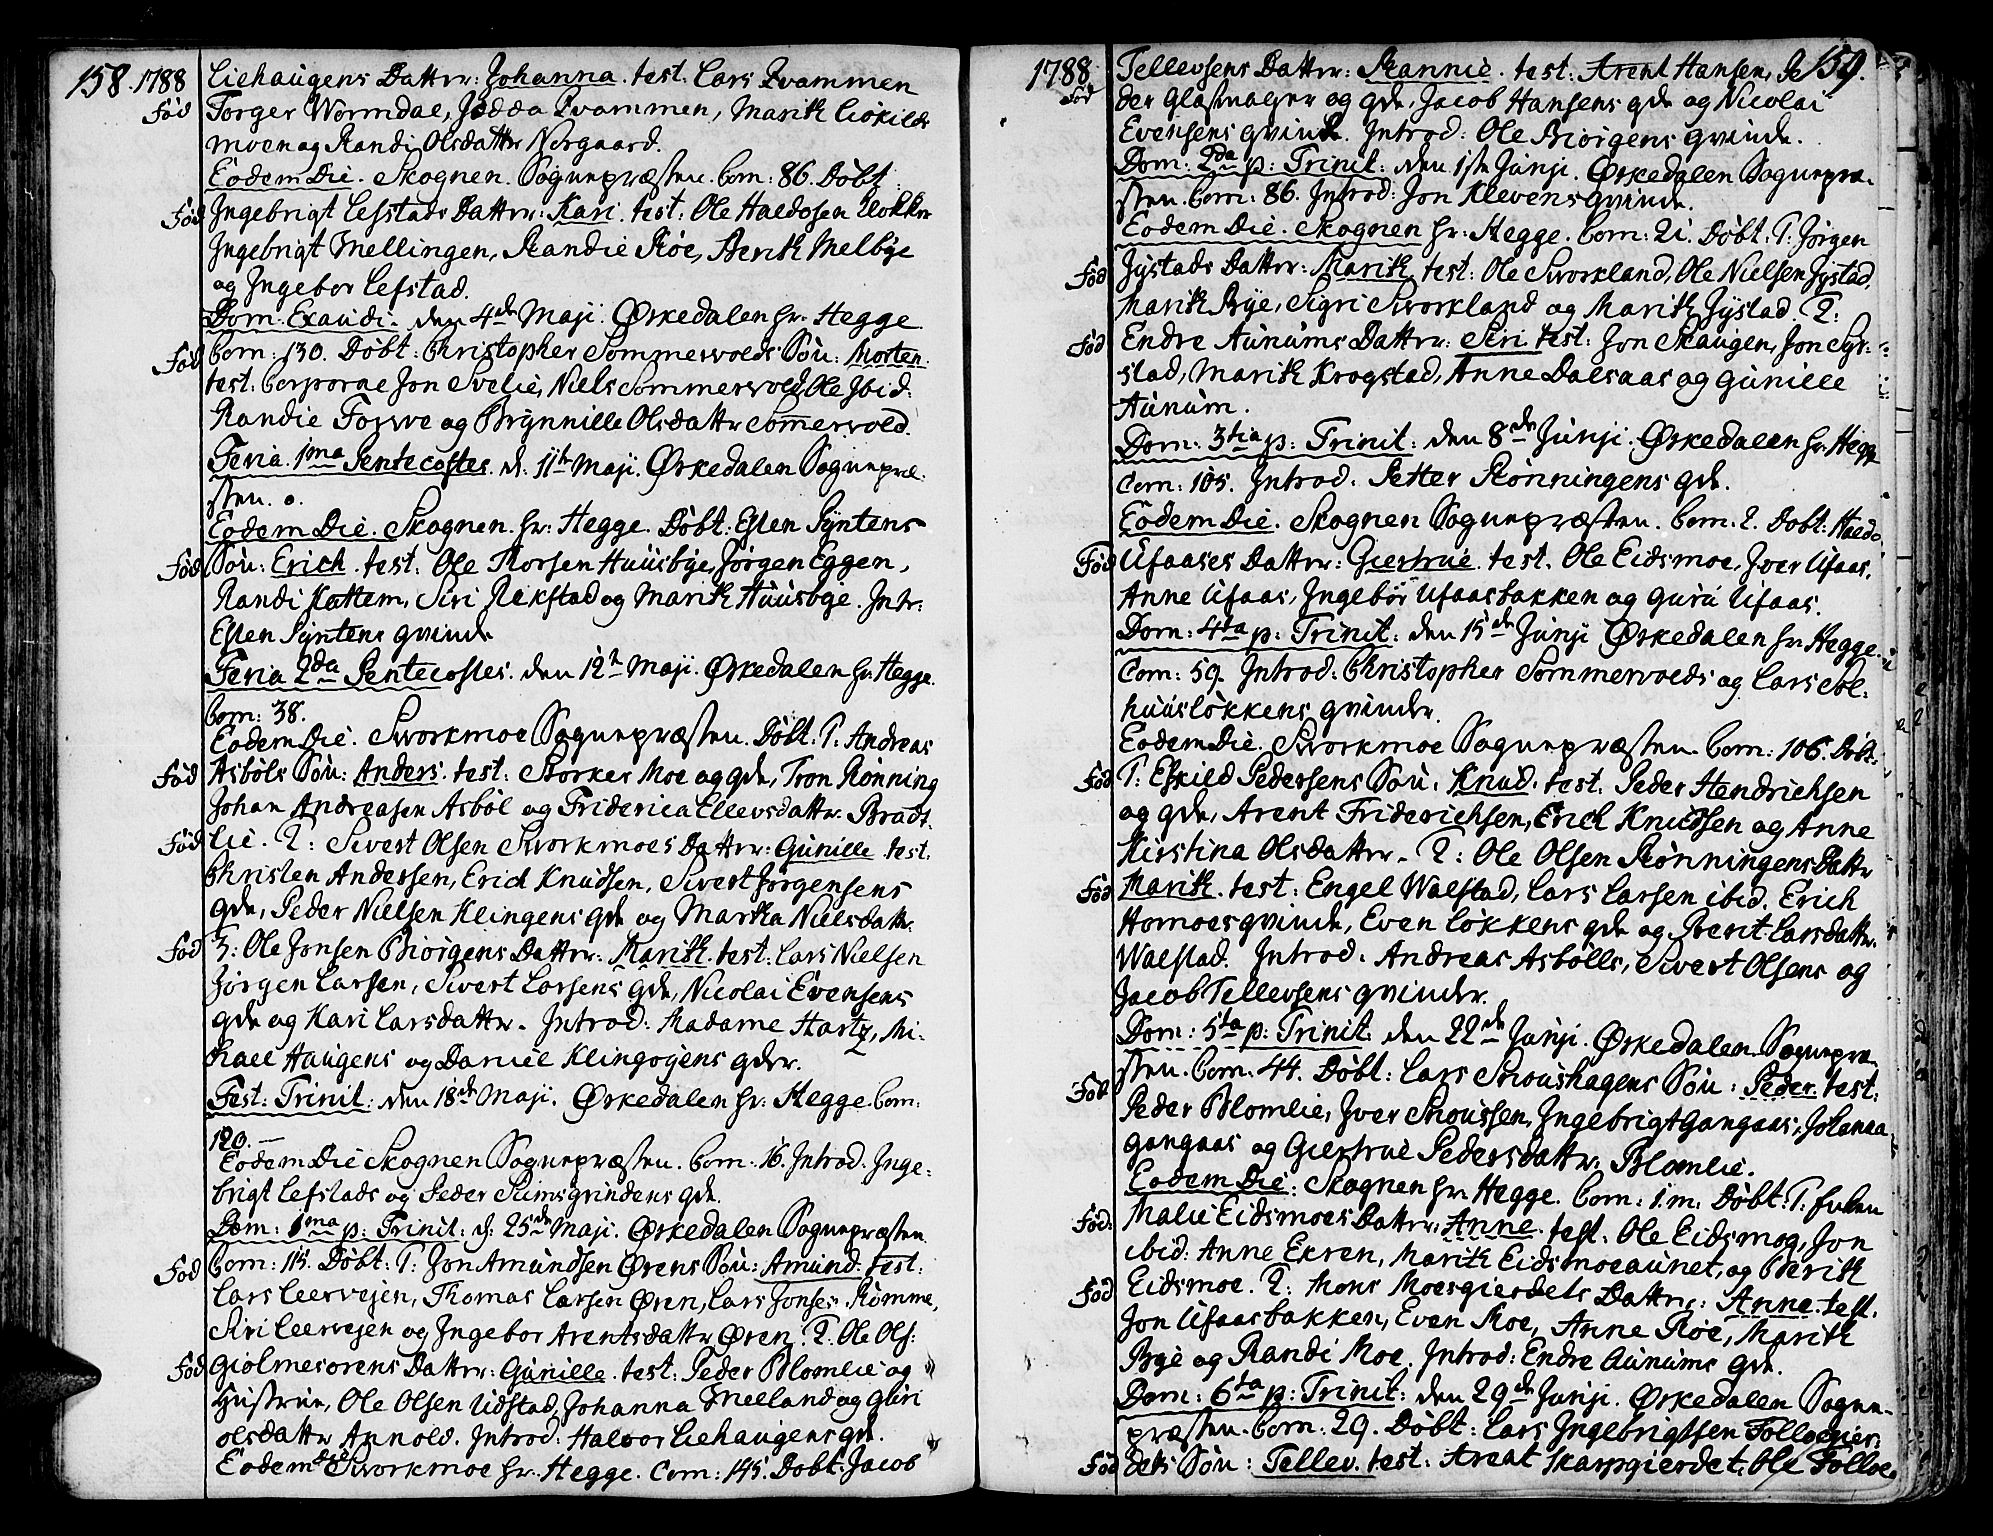 158. 1788
Liehaugens Datter: Johanna. test: Lars Qvammen
Fød
Torger Wormdal, Jødda Qvammen, Marith Løkils
moen og Randi Olsdatter Norgaard.
Eodem Die. Skognen. Sognepræsten. Com: 86. Døbt
Fød
Ingebrigt Lefstads Datter: Kari. test: Ole Haldosen Klokker
Ingebrigt Mellingen, Randie Røe, Berith Melbye
og Ingebor Lefstad.
Dom: Exaudi. den 4de Maji. Ørkedalen hr: Hegge
Fød
Com: 130. Døbt: Christopher Sommervolds Søn: Morten.
test: Corporal Jon Svelie, Niels Sommervold, Ole Ibid:
Randie Forve og Brynnille Olsdatter Somervold.
Feria 1ma Pentecostes. d: 11te Maji. Ørkedalen Sognepræ-
sten. 0.
Eodem Die. Skognen. hr: Hegge. Døbt: Esten Syntens
Fød
Søn: Erich. test: Ole Thorsen Huusbye, Jørgen Eggen,
Randi Kattem, Siri Rekstad og Marith Huusbye. Intr:
Esten Syntens qvinde
Feria 2da Pentecostes. den 12te Maji. Ørkedalen hr: Hegge.
Com: 38.
Eodem Die. Svorkmoe Sognepræsten. Døbt: 1: Andreas
Fød
Asbøls Søn: Anders. test: Storker Moe og qde, Tron Rønning
Johan Andreasen Asbøl og Friderica Ellevsdatter Bradt-
Fød
lie. 2: Sivert Olsen Svorkmoes Datter: Gunille. test.
Christen Andersen, Erich Knudsen, Sivert Jørgensens
qde, Peder Nielsen Klingens qde og Martha Nielsdatter.
Fød
3: Ole Jonsen Biørgens Datter: Marith. test: Lars Nielsen
Jørgen Larsen, Sivert Larsens qde, Nicolai Evensens
qde og Kari Larsdatter. Introd: Madame Hartz, Mi-
kael Haugens og Daniel Klingøyens qder.
Fest: Trinit: den 18de Maji. Ørkedalen hr: Hegge. Com:
120.
Eodem Die Skognen Sognepræsten. Com: 16. Introd: Inge-
brigt Lefstads og Peder Rimsgrindens qde.
Dom: 1ma p: Trinit: d: 25de Maji. Ørkedalen Sognepræsten
Fød
Com: 115. Døbt: 1: Jon Amundsen Ørens Søn: Amund. test:
Lars Leervejen, Thomas Larsen Øren, Lars Jonsen Rømme,
Siri Leervejen og Ingebor Arentsdatter Øren. 2: Ole Ols:
Fød
Giølmesørens Datter: Gunille. test: Peder Blomlie og
Hustrue, Ole Olsen Udstad, Johanna Melland og Guri
olsdatter Arnold. Introd: Halvor Liehaugens qde.
Eodem die Svorkmoe hr. Hegge. Com: 145. Døbt: Jacob
1788 159.
Fød
Tellevsens Datter: Rannie. test: Arent Hansen, Pe-
der Glasmager og qde, Jacob Hansens qde og Nicolai
Evensens qvinde. Introd: Ole Biørgens qvinde.
Dom: 2da p: Trinit: den 1ste Junji. Ørkedalen Sognepræ-
sten. Com: 86. Introd: Jon Klevens qvinde.
Eodem Die. Skognen hr: Hegge. Com: 21. Døbt: 1: Jørgen
Fød
Jystads Datter: Marith. test: Ole Svorkland, Ole Nielsen Jystad,
Marith Bye, Sigri Svorkland og Marith Jystad. 2:
Fød
Endre Aunums Datter: Siri. test: Jon Skaugen, Jon Syr-
stad, Marith Krogstad, Anne Dalsaas og Gunille
Aunum.
Dom: 3tia p: Trinit: den 8de Junji. Ørkedalen hr: Hegge
Com: 105. Introd: Petter Rønningens qde.
Eodem Die. Skognen Sognepræsten. Com: 2. Døbt: Haldo
Fød
Ufaases Datter: Giertrue. test. Ole Eidsmoe, Iver Ufaas,
Anne Ufaas, Ingebør Ufaasbakken og Guru Ufaas.
Dom: 4ta p: Trinit: den 15de Junji Ørkedalen hr: Hegge.
Com: 59. Introd: Christopher Sommervolds og Lars Sol-
huusløkkens qvinder.
Eodem Die. Svorkmoe Sognepræsten. Com: 106. Døbt:
Fød
1: Eskild Pedersens Søn: Knud. test: Peder Hendrichsen
og qde, Arent Friderichsen, Erich Knudsen og Anne
Kirstina Olsdatter. 2: Ole Olsen Rønningens Datter
Fød
Marith. test: Engel Walstad, Lars Larsen ibid. Erich
Homoes qvinde, Even Løkkens qde og Berit Larsdatter
Walstad. Introd: Andreas Asbølls, Sivert Olsens og
Jacob Tellevsens qvinder.
Dom: 5ta p: Trinit: den 22de Junji. Ørkedalen Sognepræ-
sten. Com: 44. Døbt: Lars Snoushagens Søn: Peder. test:
Fød
Peder Blomlie, Iver Snoussen, Ingebrigt Gangaas, Johanna
Gangaas og Giertrue Pedersdatter Blomlie.
Eodem Die: Skognen hr: Hegge. Com: 1. m: Døbt: 1:
Fød.
Malie Eidsmoes Datter: Anne. test: Ole Eidsmoe, Jon
ibid: Anne Ekren, Marith Eidsmoeaunet, og Berith
Fød
Eidsmoe. 2: Mons Moesgierdets Datter: Anne. test.
Jon Ufaasbakken, Even Moe, Anne Røe, Marith
Bye og Randi Moe. Introd: Endre Aunums qde.
Dom: 6ta p: Trinit: den 29de Junji. Ørkedalen Sogne-
præsten. Com: 29. Døbt: Lars Ingebrigtsen Folloegier-
Fød
dets Søn: Tellev. test: Arent Skarpgierdet, Ole Folloe